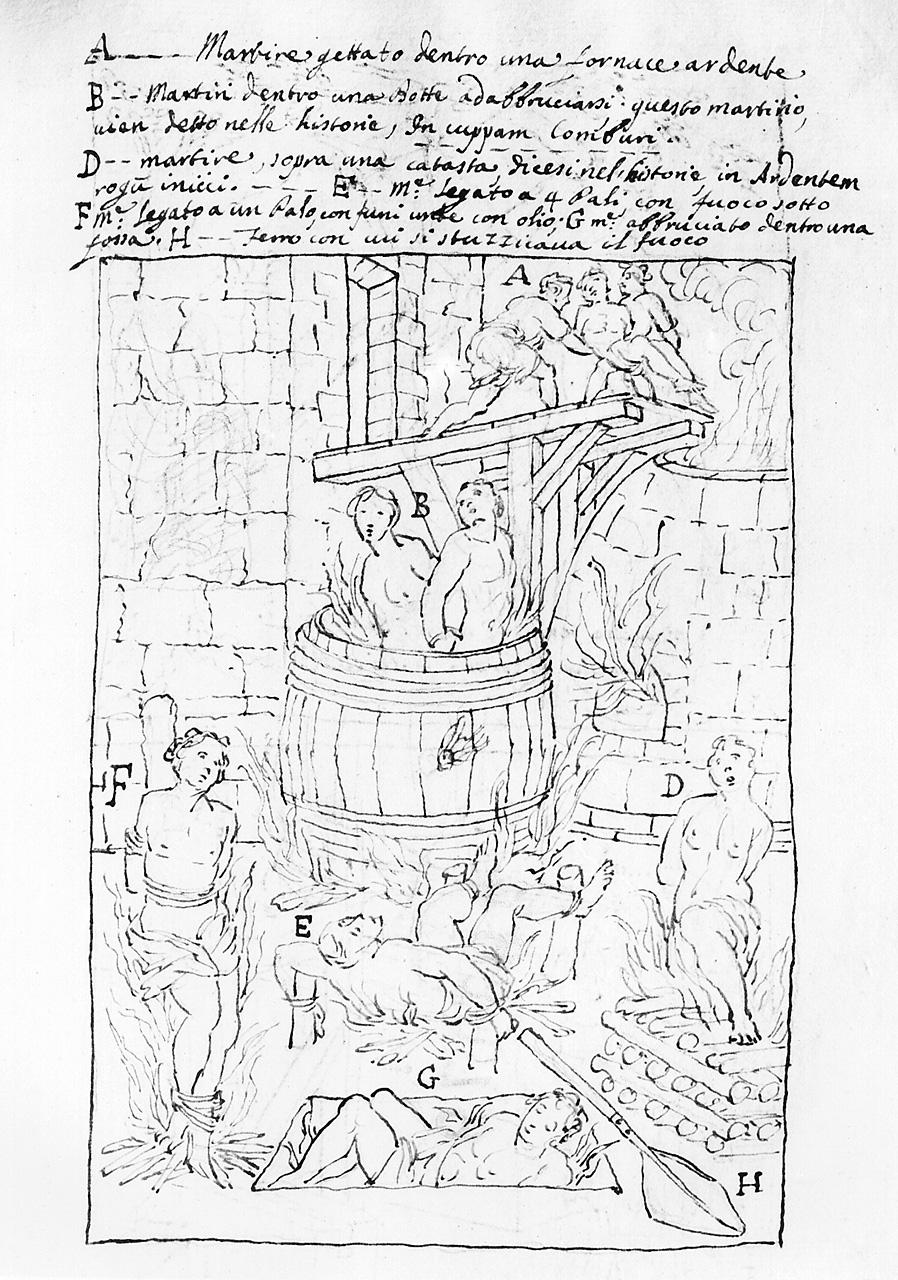 A---- Martire gettato dentro una fornace ardente
B-- Martiri dentro una Botte ad abbruciarsi: questo martirio,
vien detto nelle historie, In cuppam Comburi.
D-- martire, sopra una catasta dicesi nel historie in Ardentem
rogū iniici. ---- E-- m.e legato a 4 Pali con fuoco sotto
F m.e legato a un Palo, con funi unte con olio, G m.e abbruciato dentro una
fossa. H-- Ferro con cui si stuzzicaua il fuoco
A
B
F
D
E
G
H